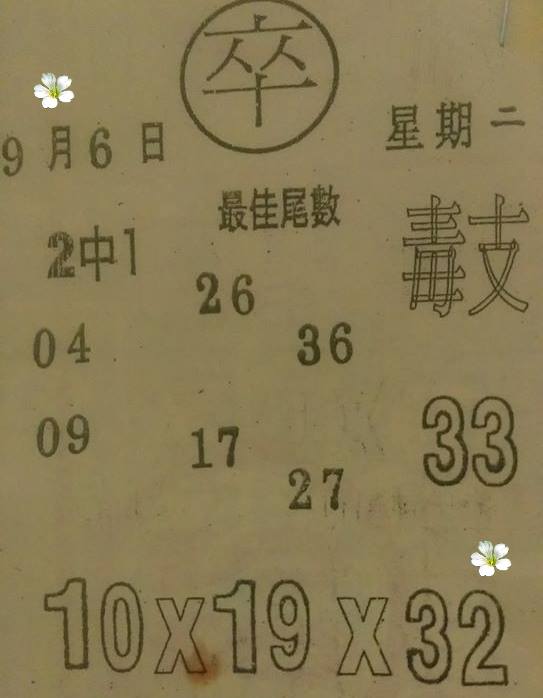 卒
9月6日
星期二
最佳尾數
毒支
2中1
26
04
36
09
17
33
27
10X19X32